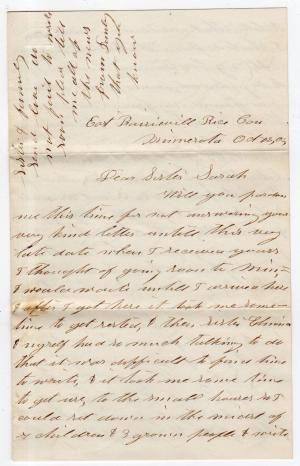 East Prairieville Rice Cou
Minnesota Oct
Dear Sister Sarah
Will you pardon
me this time for not answering your
very kind letter untill this very
late date when I received yours
I thought of going soon to Min-
& would wait untill I arrived here
& after I got here it took me some-
time to get rested, & then Sister
& myself had so much talking to do
that it was difficult to find time
to write, & it took me some time
to get used to the small house so I
could set down in the midst of
7 children & 3 grown people & write
Sister
send love do
not fail to write
soon please tell
me all of
the news
from
that you
know